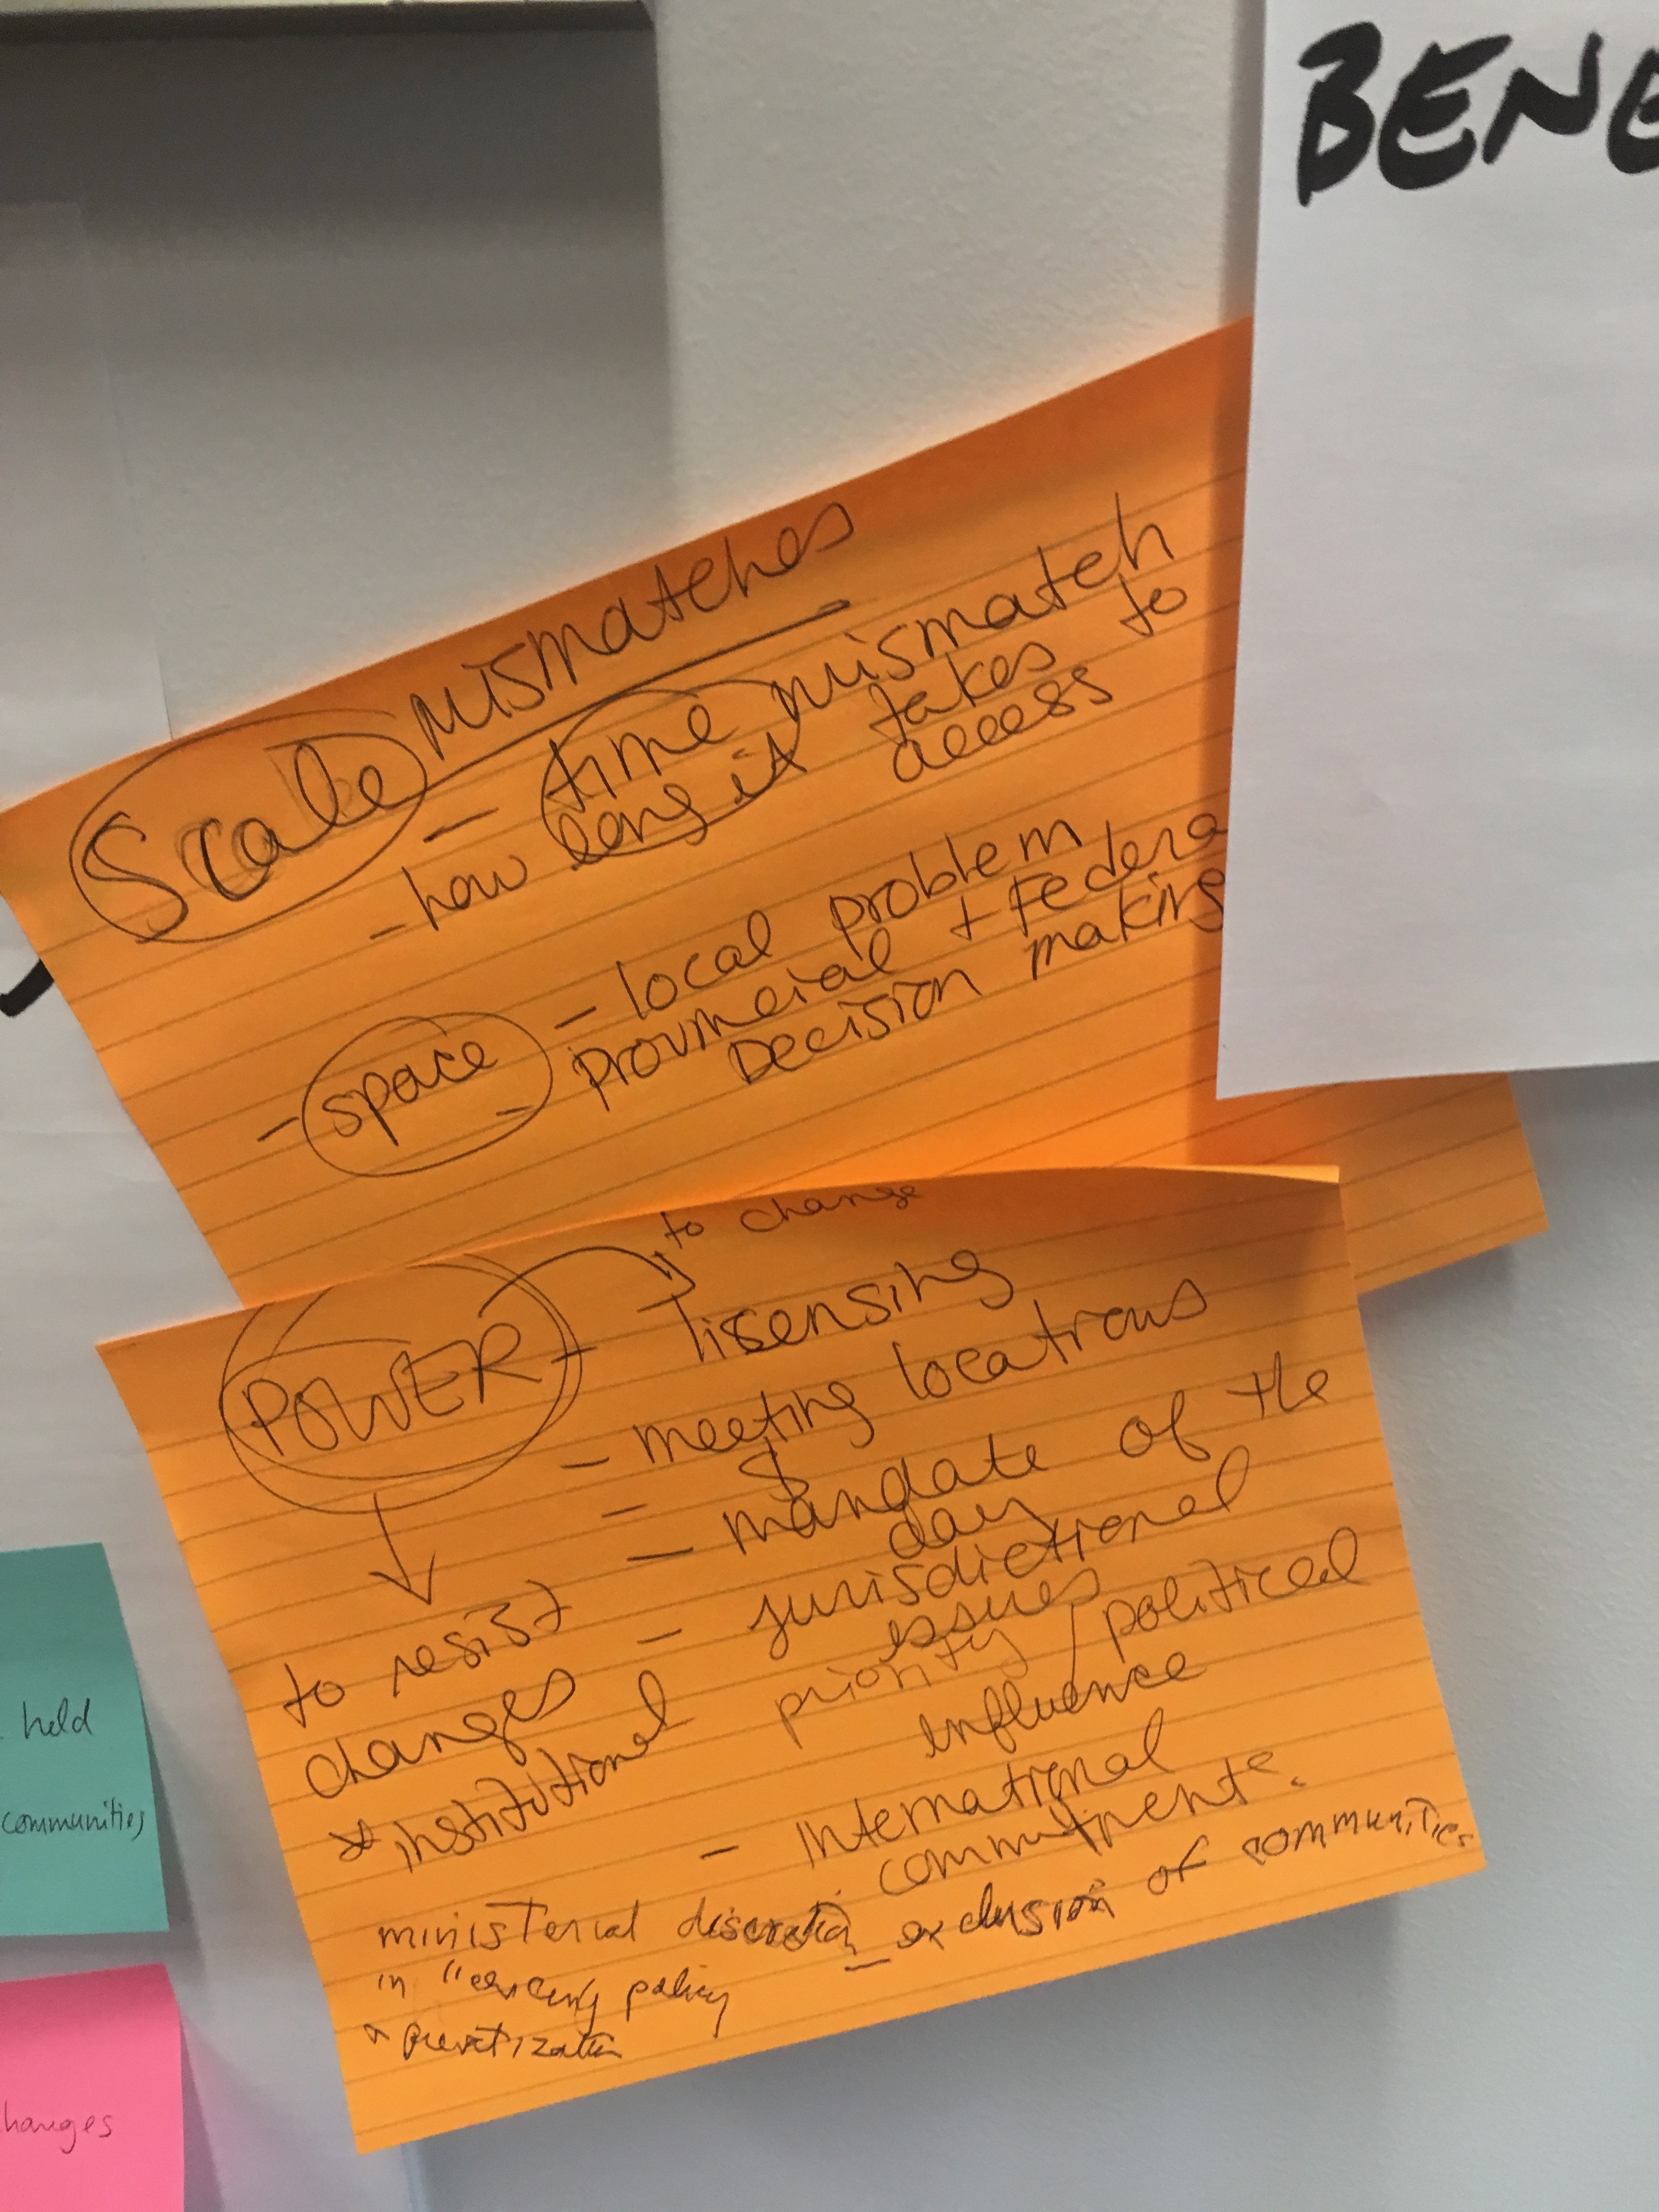 BENE
Scale mismatches
- time mismatch
- how long it takes to
access
- space - local problem
- provincial + Federa
Decision making
to change
POWER - lisensing
- meeting locations
- $
- mandate of the
day
- jurisdictional
issues
to resist
changes
* institutional priority / political
influence
- International
commitments.
ministerial discretion - exclusion of communities
in policy
privatization
held
communities
hanges